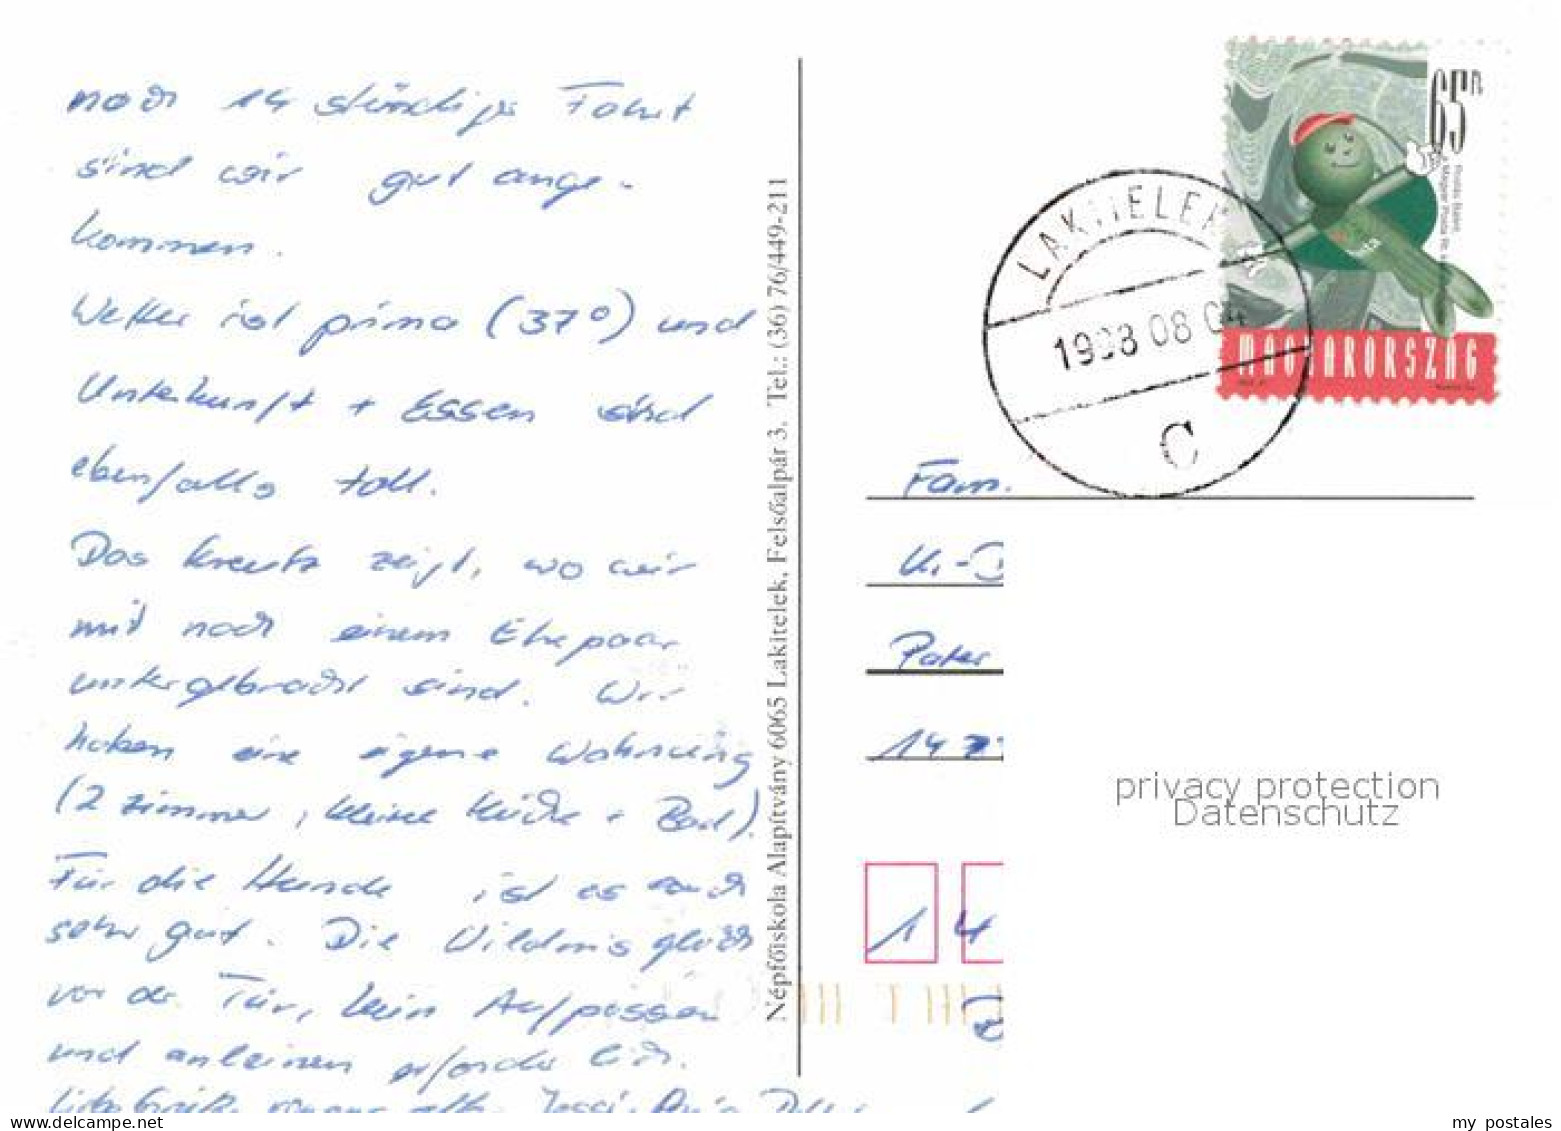 nach 14 stündiger Fahrt
sind wir gut ange-
kommen.
Wetter ist prima (37°) und
Unterkunft + Essen sind
ebenfalls toll.
Das Kreutz zeigt, wo wir
mit noch einem Ehepaar
untergebracht sind. Wir
haben eine eigene Wohnung
(2 Zimmer, kleine Küche + Bad).
Für die Hunde ist es auch
sehr gut. Die Wildnis gleich
vor der Tür, kein Aufpassen
und anleinen erforderlich.
Népfőiskola Alapítvány 6065 Lakitelek, Felsőalpár 3. Tel.: (36) 76/449-211
65Ft
MAGYARORSZÁG
LAKITELEK
1998 08 04
C
Fam.
K.-D
Pater
14
1 4
privacy protection
Datenschutz
my postales